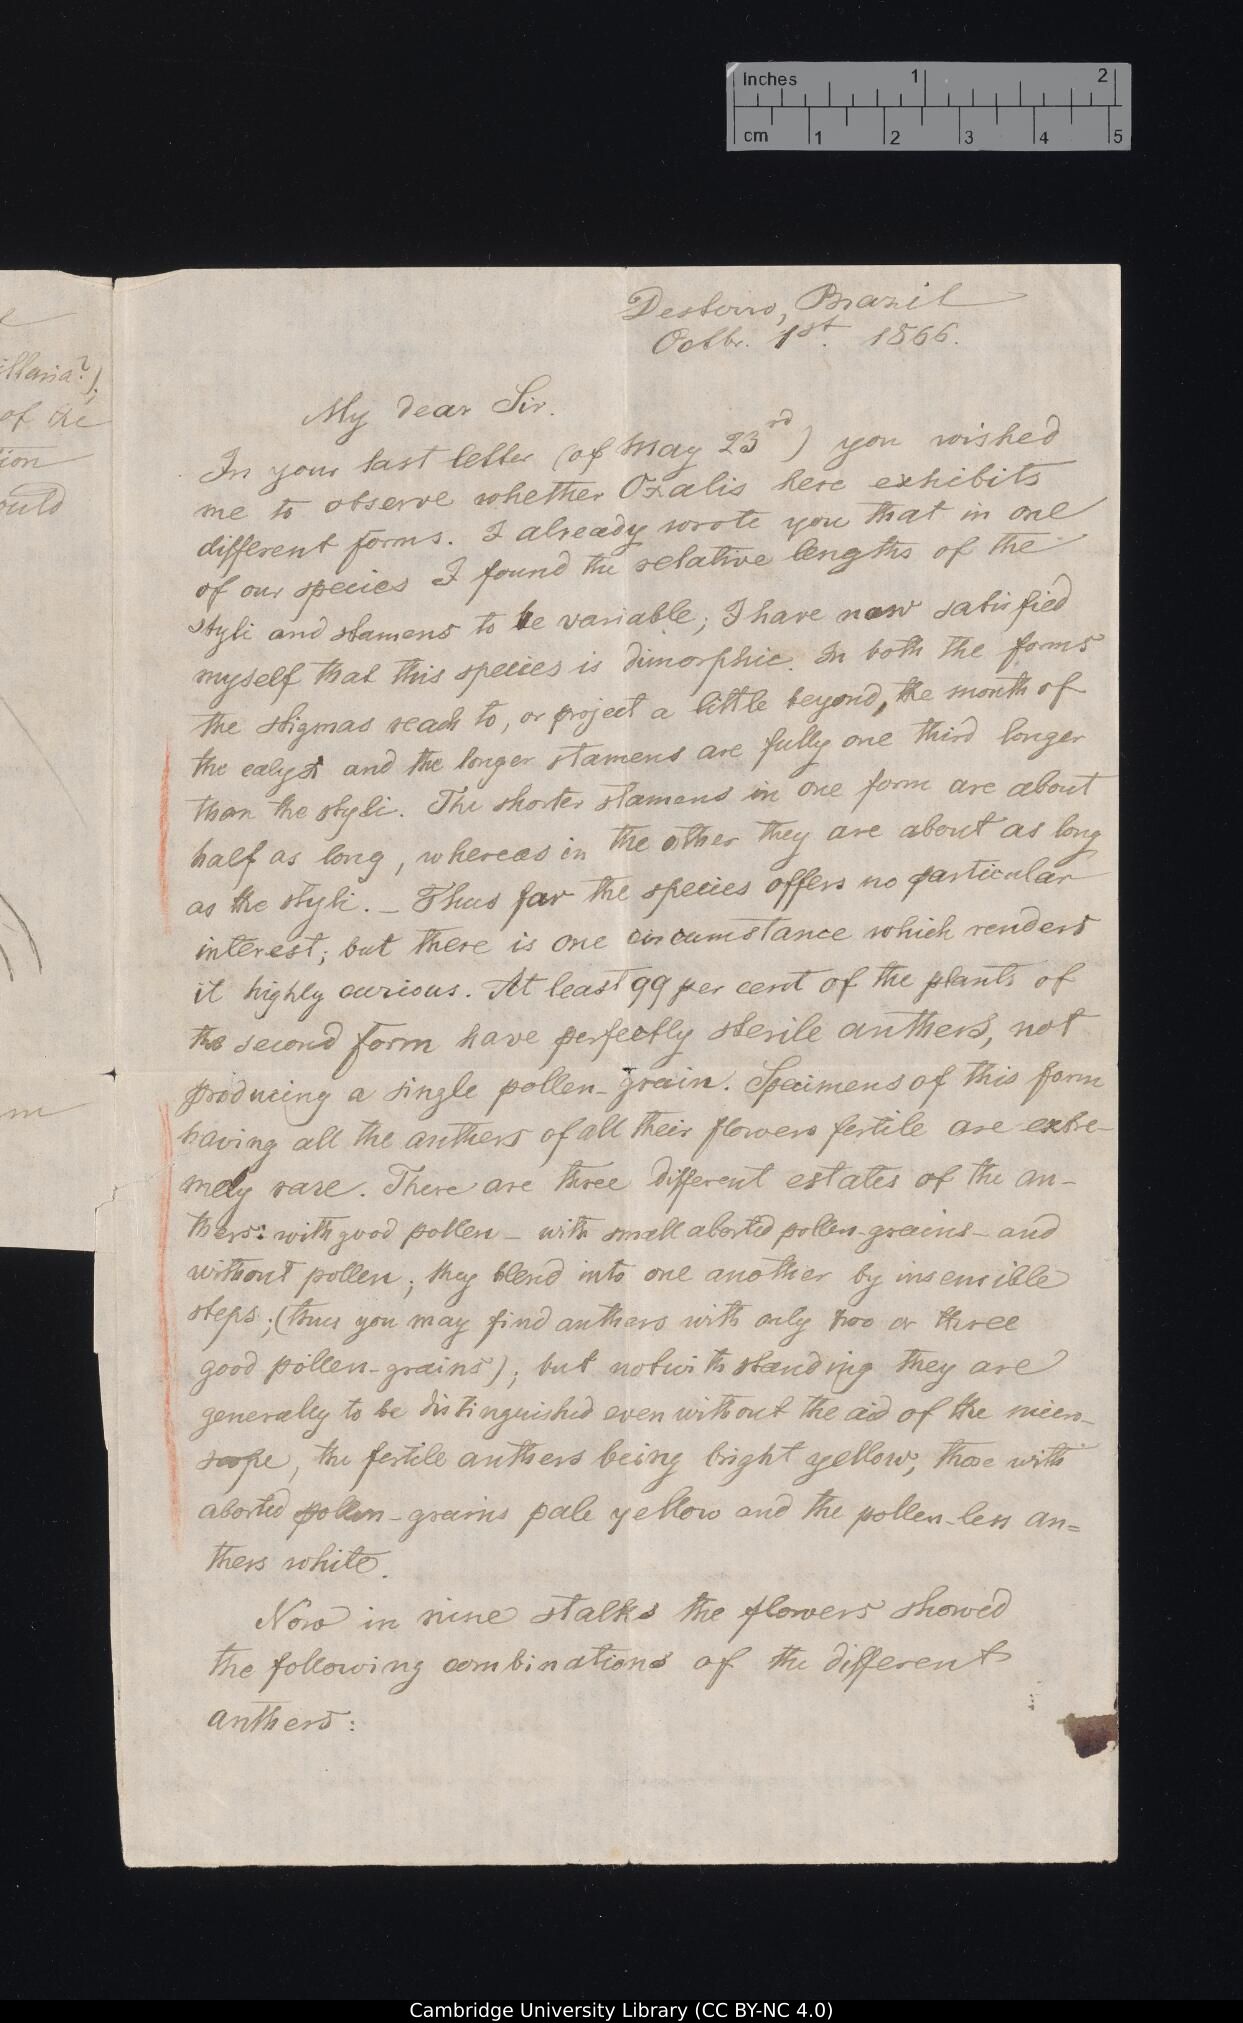 Inches 1 2
cm 1 2 3 4 5
illaria?).
of the
tion
ould
m
Desterro, Brazil
Octbr. 1st. 1866.
My dear Sir.
In your last letter (of May 23rd) you wished
me to observe whether Oxalis here exhibits
different forms. I already wrote you that in one
of our species I found the relative lengths of the
styli and stamens to be variable; I have now satisfied
myself that this species is dimorphic. In both the forms
the stigmas reach to, or project a little beyond, the mouth of
the calyx and the longer stamens are fully one third longer
than the styli. The shorter stamens in one form are about
half as long, whereas in the other they are about as long
as the styli. – Thus far the species offers no particular
interest; but there is one circumstance which renders
it highly curious. At least 99 per cent of the plants of
the second form have perfectly sterile anthers, not
producing a single pollen-grain. Specimens of this form
having all the anthers of all their flowers fertile are extre-
mely rare. There are three different estates of the an-
thers: with good pollen – with small aborted pollen-grains – and
without pollen; they blend into one another by insensible
steps; (thus you may find anthers with only two or three
good pollen-grains); but notwithstanding they are
generally to be distinguished even without the aid of the micro-
scope, the fertile anthers being bright yellow; those with
aborted pollen-grains pale yellow and the pollen-less an=
thers white.
Now in nine stalks the flowers showed
the following combinations of the different
anthers:
Cambridge University Library (CC BY-NC 4.0)